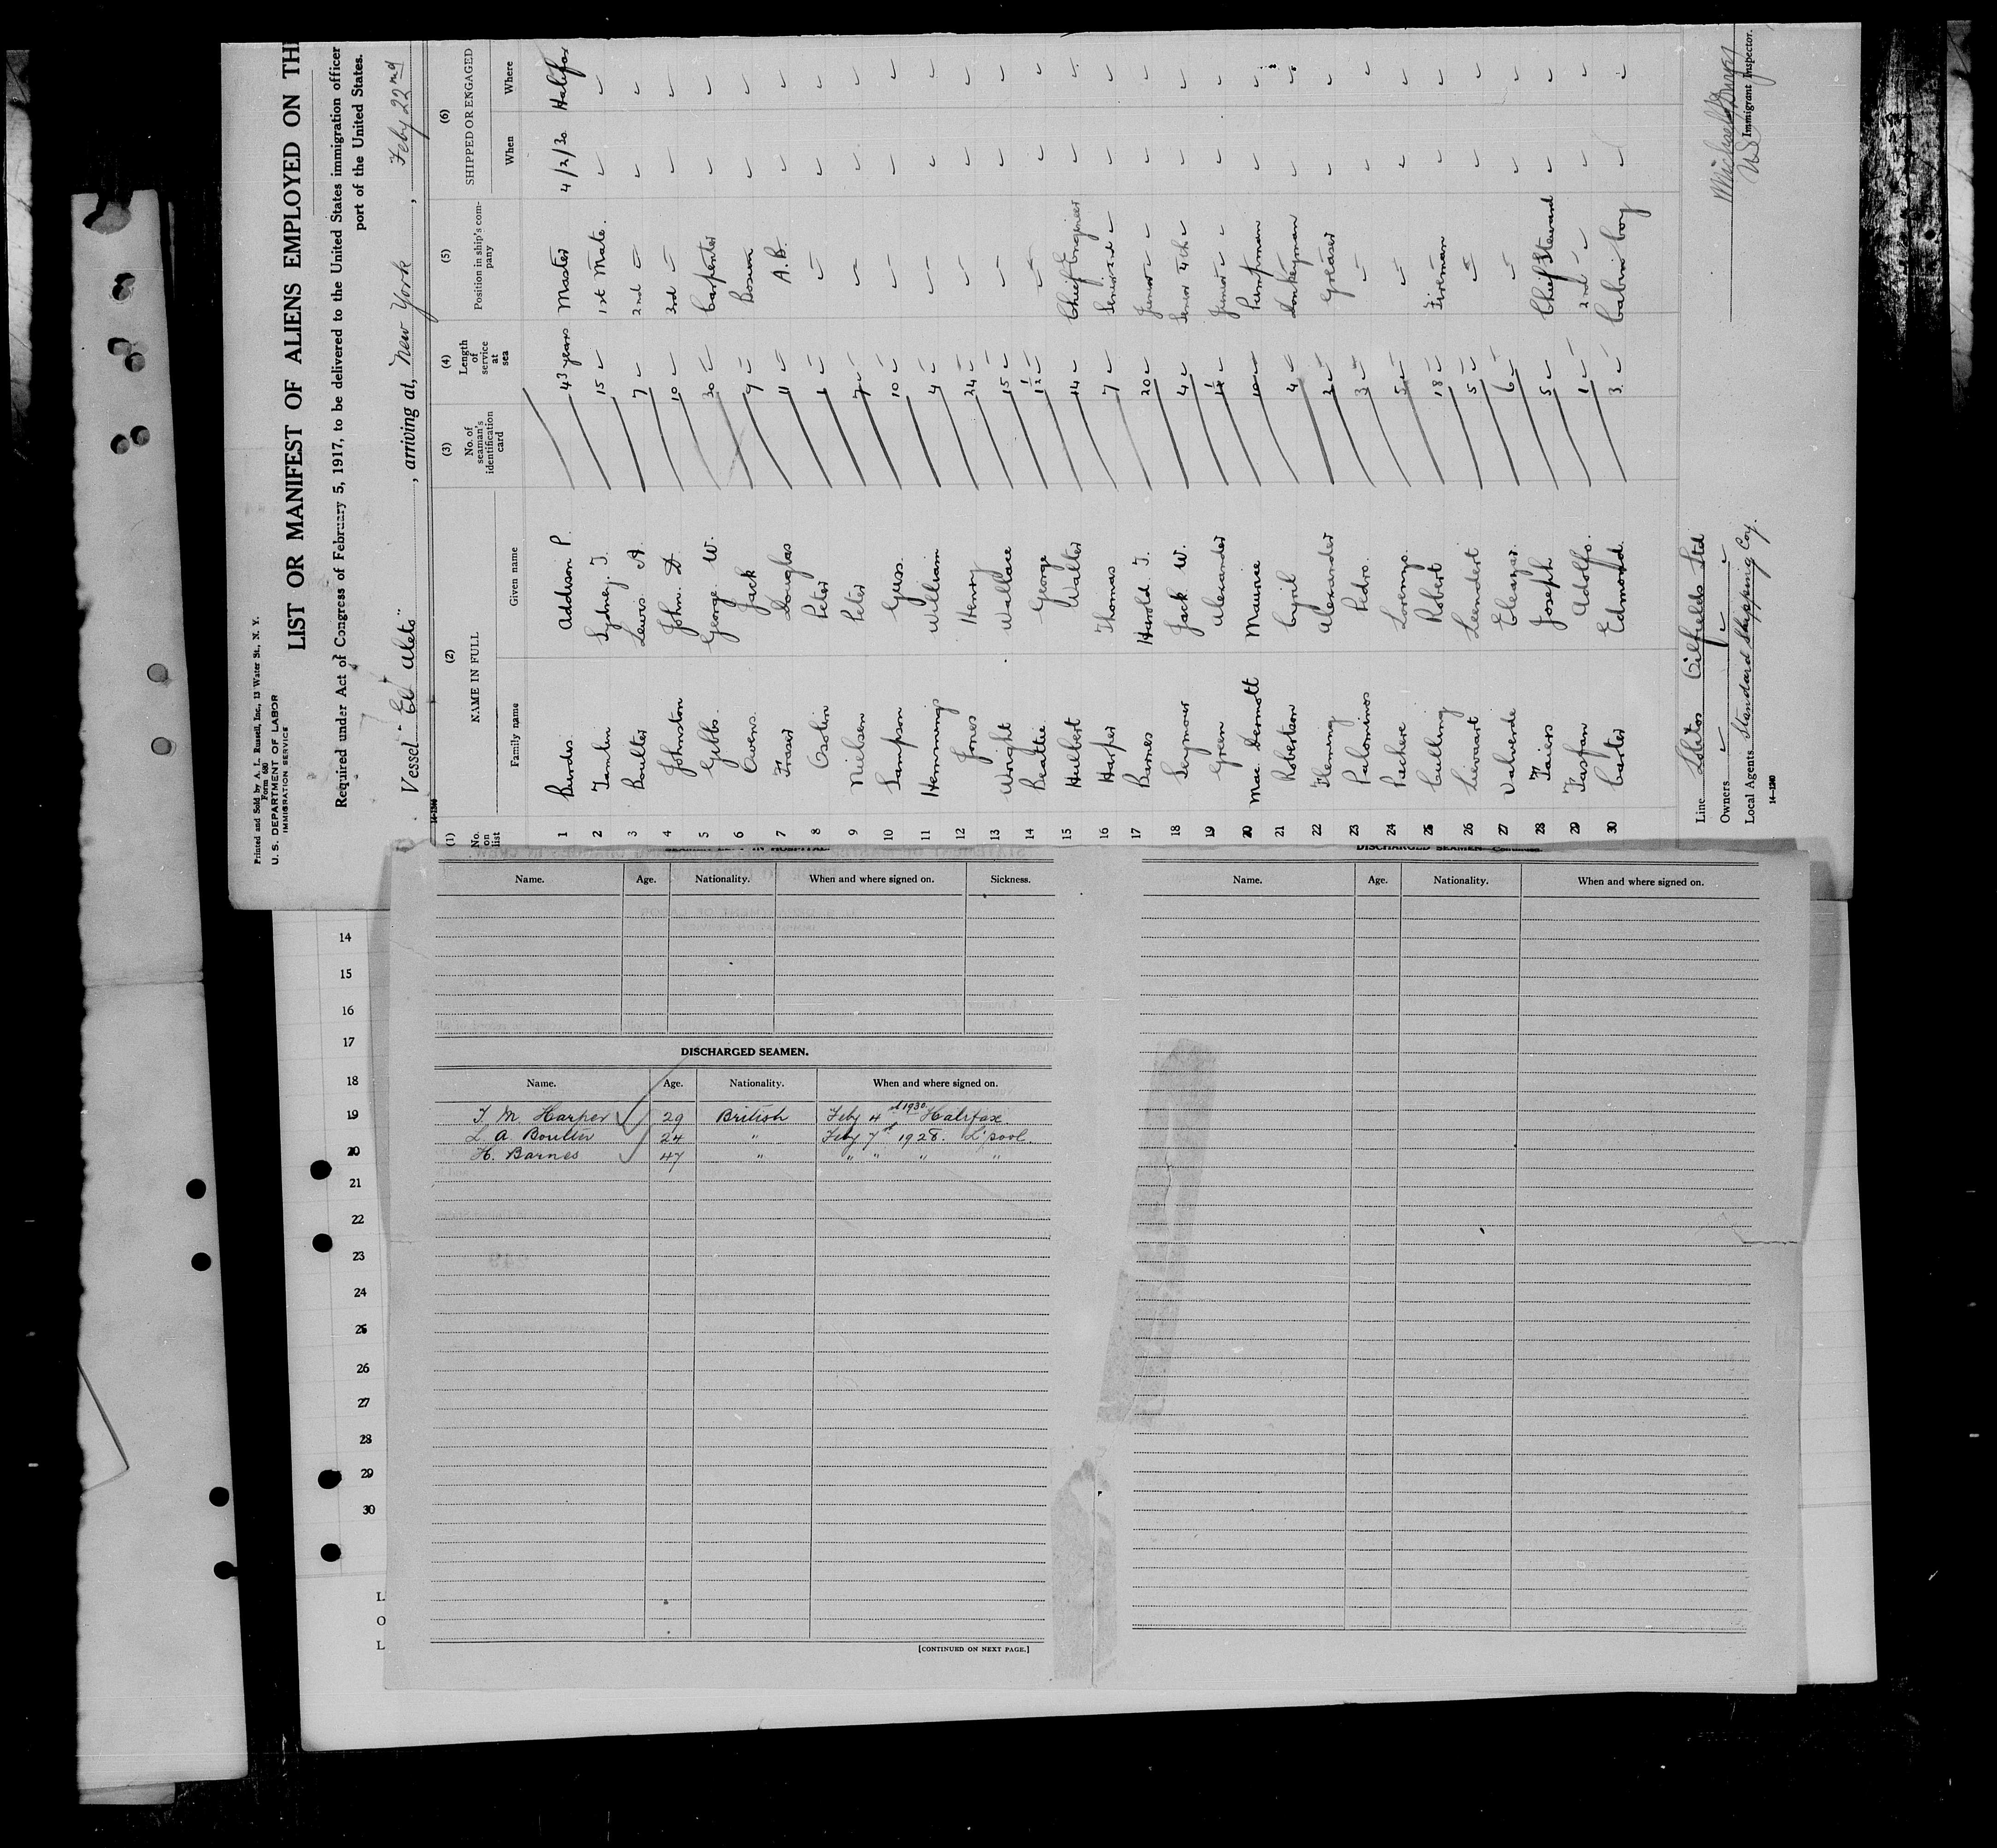 Printed and Sold by A. L. Russell, Inc., 13 Water St., N. Y.
Form 680
U. S. DEPARTMENT OF LABOR
IMMIGRATION SERVICE
LIST OR MANIFEST OF ALIENS EMPLOYED ON TH
Required under Act of Congress of February 5, 1917, to be delivered to the United States immigration officer
port of the United States.
Vessel "El Aleto" , arriving at, New York , Feby 22nd
14-1240
(1) (2) (3) (4) (5) (6)
No. on list NAME IN FULL No. of seaman's identification card Length of service at sea Position in ship's company SHIPPED OR ENGAGED
Family name Given name When Where
1 Purdis Addison P. 43 years Master 4/2/30 Halifax
2 Tamlin Sydney. J. 15 1st Mate.
3 Boulter Lewis A. 7 2nd
4 Johnston John. D. 10 3rd
5 Gibbs. George W. 30 Carpenter
6 Owens. Jack 9 Bosun
7 Fraser Douglas 11 A.B.
8 Peter
9 Nielsen Peter 7
10 Sampson Guss. 10
11 Hemmings William 4
12 Jones Henry 24
13 Wright Wallace 15
14 Beattie George
15 Hulbert Walter 14 Chief Engineer
16 Harper Thomas 7 Senior 2nd
17 Barnes Harold. J. 20 Junior
18 Seymour Jack W. 4 Senior 4th
19 Green Alexander Junior
20 Mac. Dermott Maurice 10 Pumpman
21 Robertson Cyril 4 Donkeyman
22 Fleming Alexander 2 Greaser
23 Palominos Pedro. 3
24 Pachere Lorenzo. 5
25 Culling Robert 18 Fireman
26 Lievaart Leendert 5
27 Valverde Eleazar. 6
28 Tiaiers Joseph 5 Chief Steward
29 Adolfo. 1 2nd
30 Carter Edmond. 3 Cabin boy
Line Lobitos Oilfields Ltd
Owners
Local Agents Standard Shipping Coy.
Immigrant Inspector.
14-1240
SEAMEN LEFT IN HOSPITAL.
Name. Age. Nationality. When and where signed on. Sickness.
DISCHARGED SEAMEN.
Name. Age. Nationality. When and where signed on.
T. M. Harper 29 British Feby 4 1930 Halifax
L. A. Boulter 24 " Feby 7 1928. L'pool
H. Barnes 47 " " " " "
[CONTINUED ON NEXT PAGE.]
DISCHARGED SEAMEN—Continued.
Name. Age. Nationality. When and where signed on.
14
15
16
17
18
19
20
21
22
23
24
25
26
27
28
29
30
L
O
L